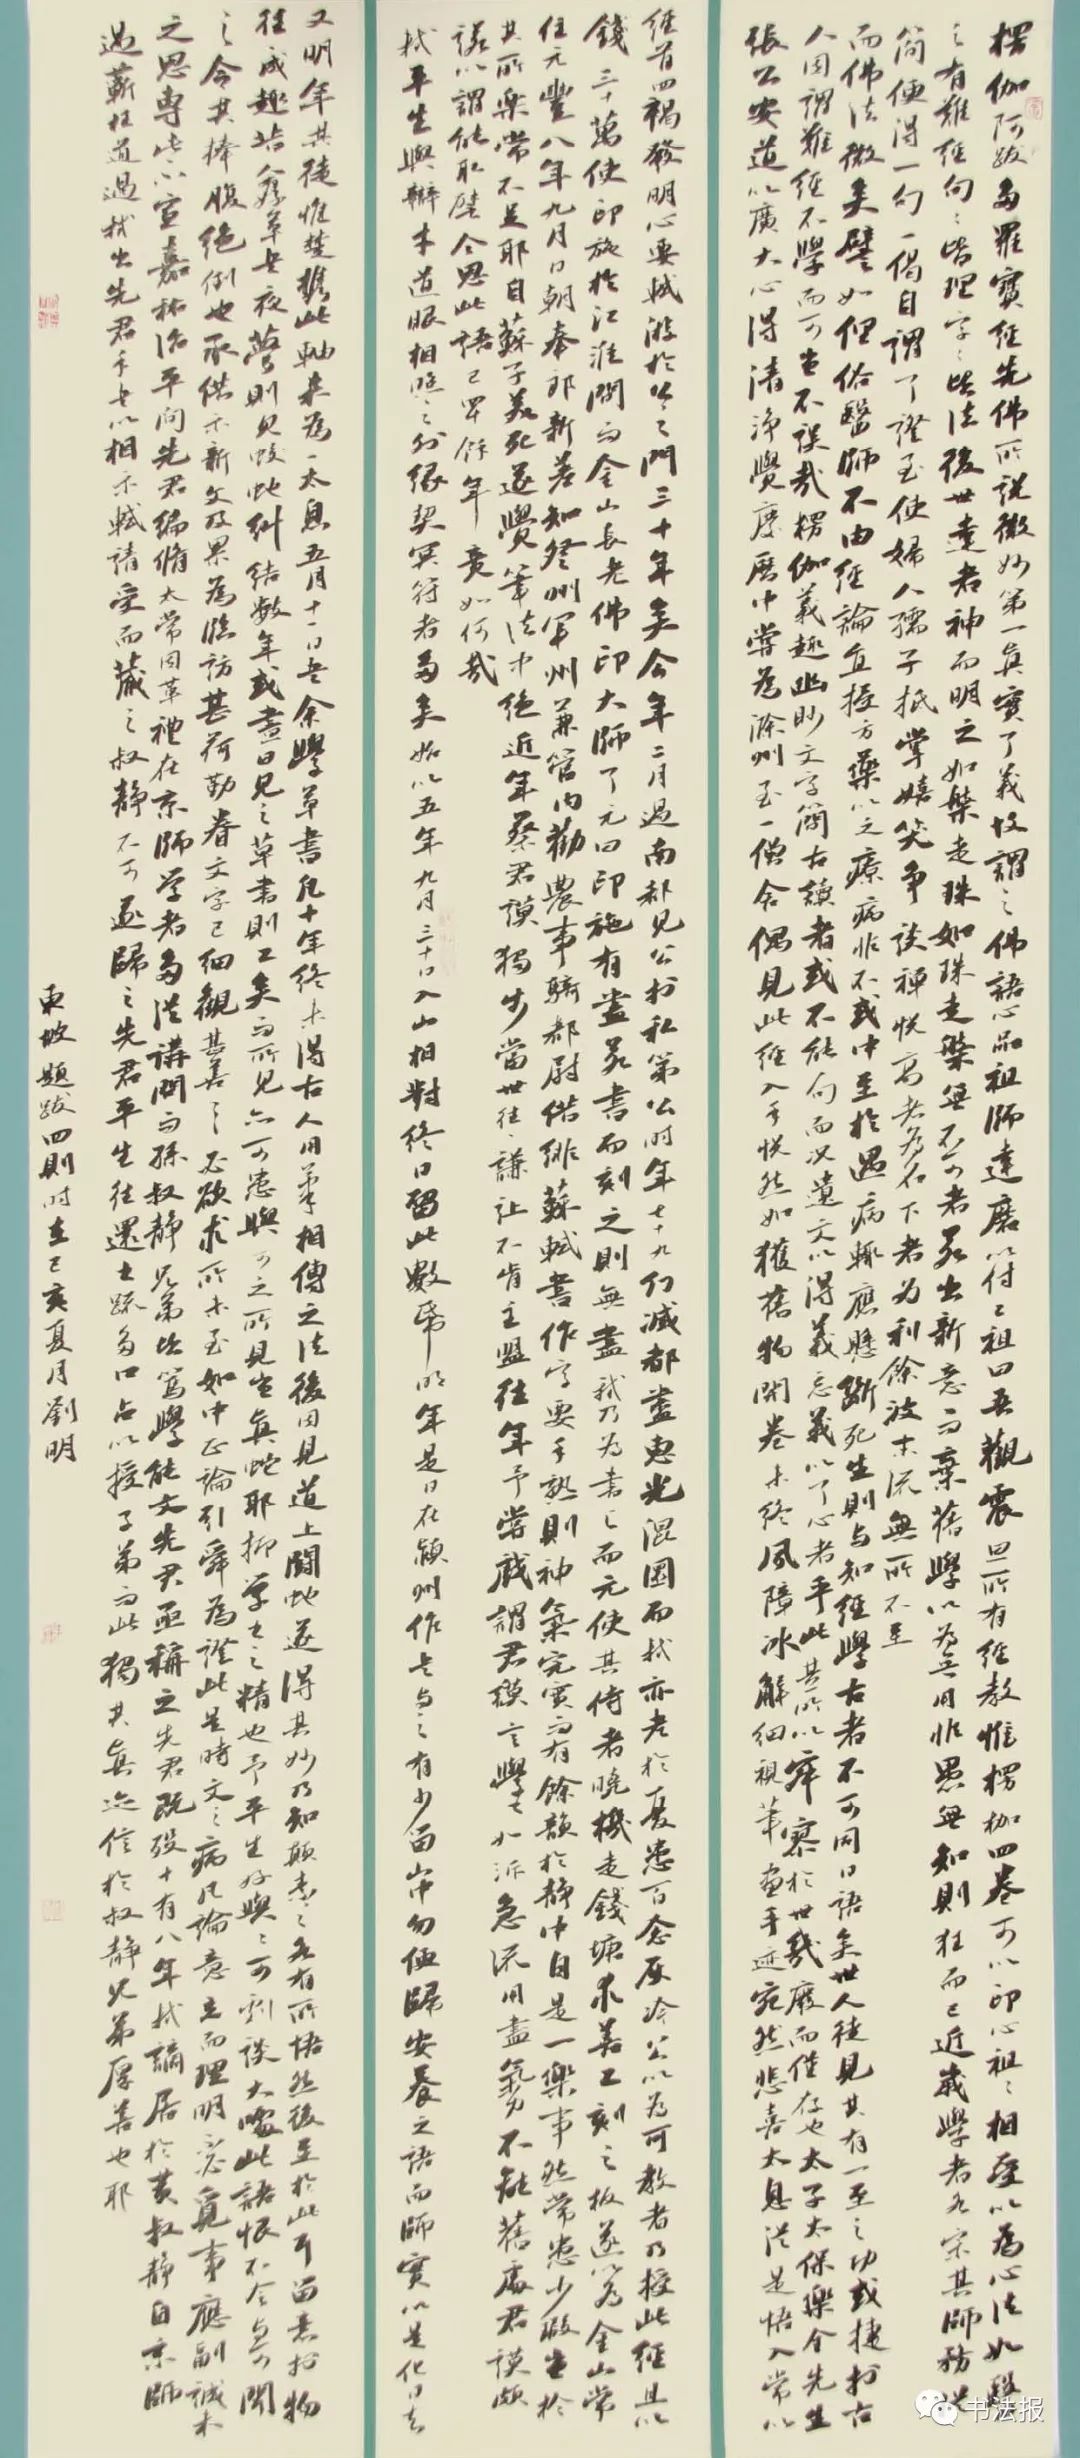 楞伽阿跋多羅寶經先佛所說微妙第一真實了義故謂之佛語心品祖師達磨以付二祖曰吾觀震旦所有經教惟楞伽四卷可以印心祖〻相受以為心法如醫
之有難經句〻皆理字〻皆法後世達者神而明之如槃走珠如珠走槃無不可者若出新意而棄舊學以為無用非愚無知則狂而已近歲學者各宗其師務從
簡便得一句一偈自謂了證至使婦人孺子抵掌嬉笑爭談禪悅高者為名下者為利餘波末流無所不至
而佛法微矣譬如俚俗醫師不由經論直授方藥以之療病非不或中至於遇病輒應懸斷死生則與知經學古者不可同日語矣世人徒見其有一至之功或捷於古
人因謂難經不學而可豈不誤哉楞伽義趣幽眇文字簡古讀者或不能句而況遺文以得義忘義以了心者乎此其所以寂寥於世幾廢而僅存也太子太保樂全先生
張公安道以廣大心得清淨覺慶曆中嘗為滁州至一僧舍偶見此經入手恍然如獲舊物開卷未終夙障冰解細視筆畫手跡宛然悲喜太息從是悟入常以
經首四偈發明心要軾游於公之門三十年矣今年二月過南都見公於私第公時年七十九幻滅都盡惠光渾圜而軾亦老於憂患百念灰冷公以為可教者乃授此經且以
錢三十萬使印施於江淮間而金山長老佛印大師了元曰印施有盡若書而刻之則無盡軾乃為書之而元使其侍者曉機走錢塘求善工刻之板遂以為金山常
住元豐八年九月日朝奉郎新差知登州軍州兼管內勸農事騎都尉借緋蘇軾書作字要手熟則神氣完實而有餘韻於靜中自是一樂事然常患少暇豈於
其所樂常不足耶自蘇子美死遂覺筆法中絕近年蔡君謨獨步當世往〻謙讓不肯主盟往年予嘗戲謂君謨言學書如泝急流用盡氣力不離舊處君謨頗
諾以謂能取譬今思此語已四十餘年竟如何哉
軾平生與辯才道眼相照之外緣契冥符者多矣始以五年九月三十日入山相對終日留此數紙明年是日在潁州作書與之有少留山中勿便歸安養之語而師實以是化日去
又明年其徒惟楚攜此軸來為一太息五月十一日書余學草書凡十年終未得古人用筆相傳之法後因見道上鬬蛇遂得其妙乃知顛素之各有所悟然後至於此耳留意於物
往〻成趣昔人好草書夜夢則見蛟蛇糾結數年或晝日見之草書則工矣而所見亦可患與可之所見豈真蛇耶抑草書之精也予平生好與與可劇談大噱此語恨不令與可聞
之令其捧腹絕倒也承借示新文及累為臨訪甚荷勤眷文字已細觀甚善〻必欲求所未至如中正論引舜為證此是時文之病凡論意立而理明不必覓事應副誠未
之思專此不宣嘉祐治平間先君編脩太常因革禮在京師學者多從講問而孫叔靜兄弟皆篤學能文先君亟稱之先君既歿十有八年軾謫居於黃叔靜自京師
過蘄枉道過軾出先君手書以相示軾請受而藏之叔靜不可遂歸之先君平生往還書疏多口占以授子弟而此獨其真迹信於叔靜兄弟厚善也耶
東坡題跋四則時在己亥夏月劉明
书法报